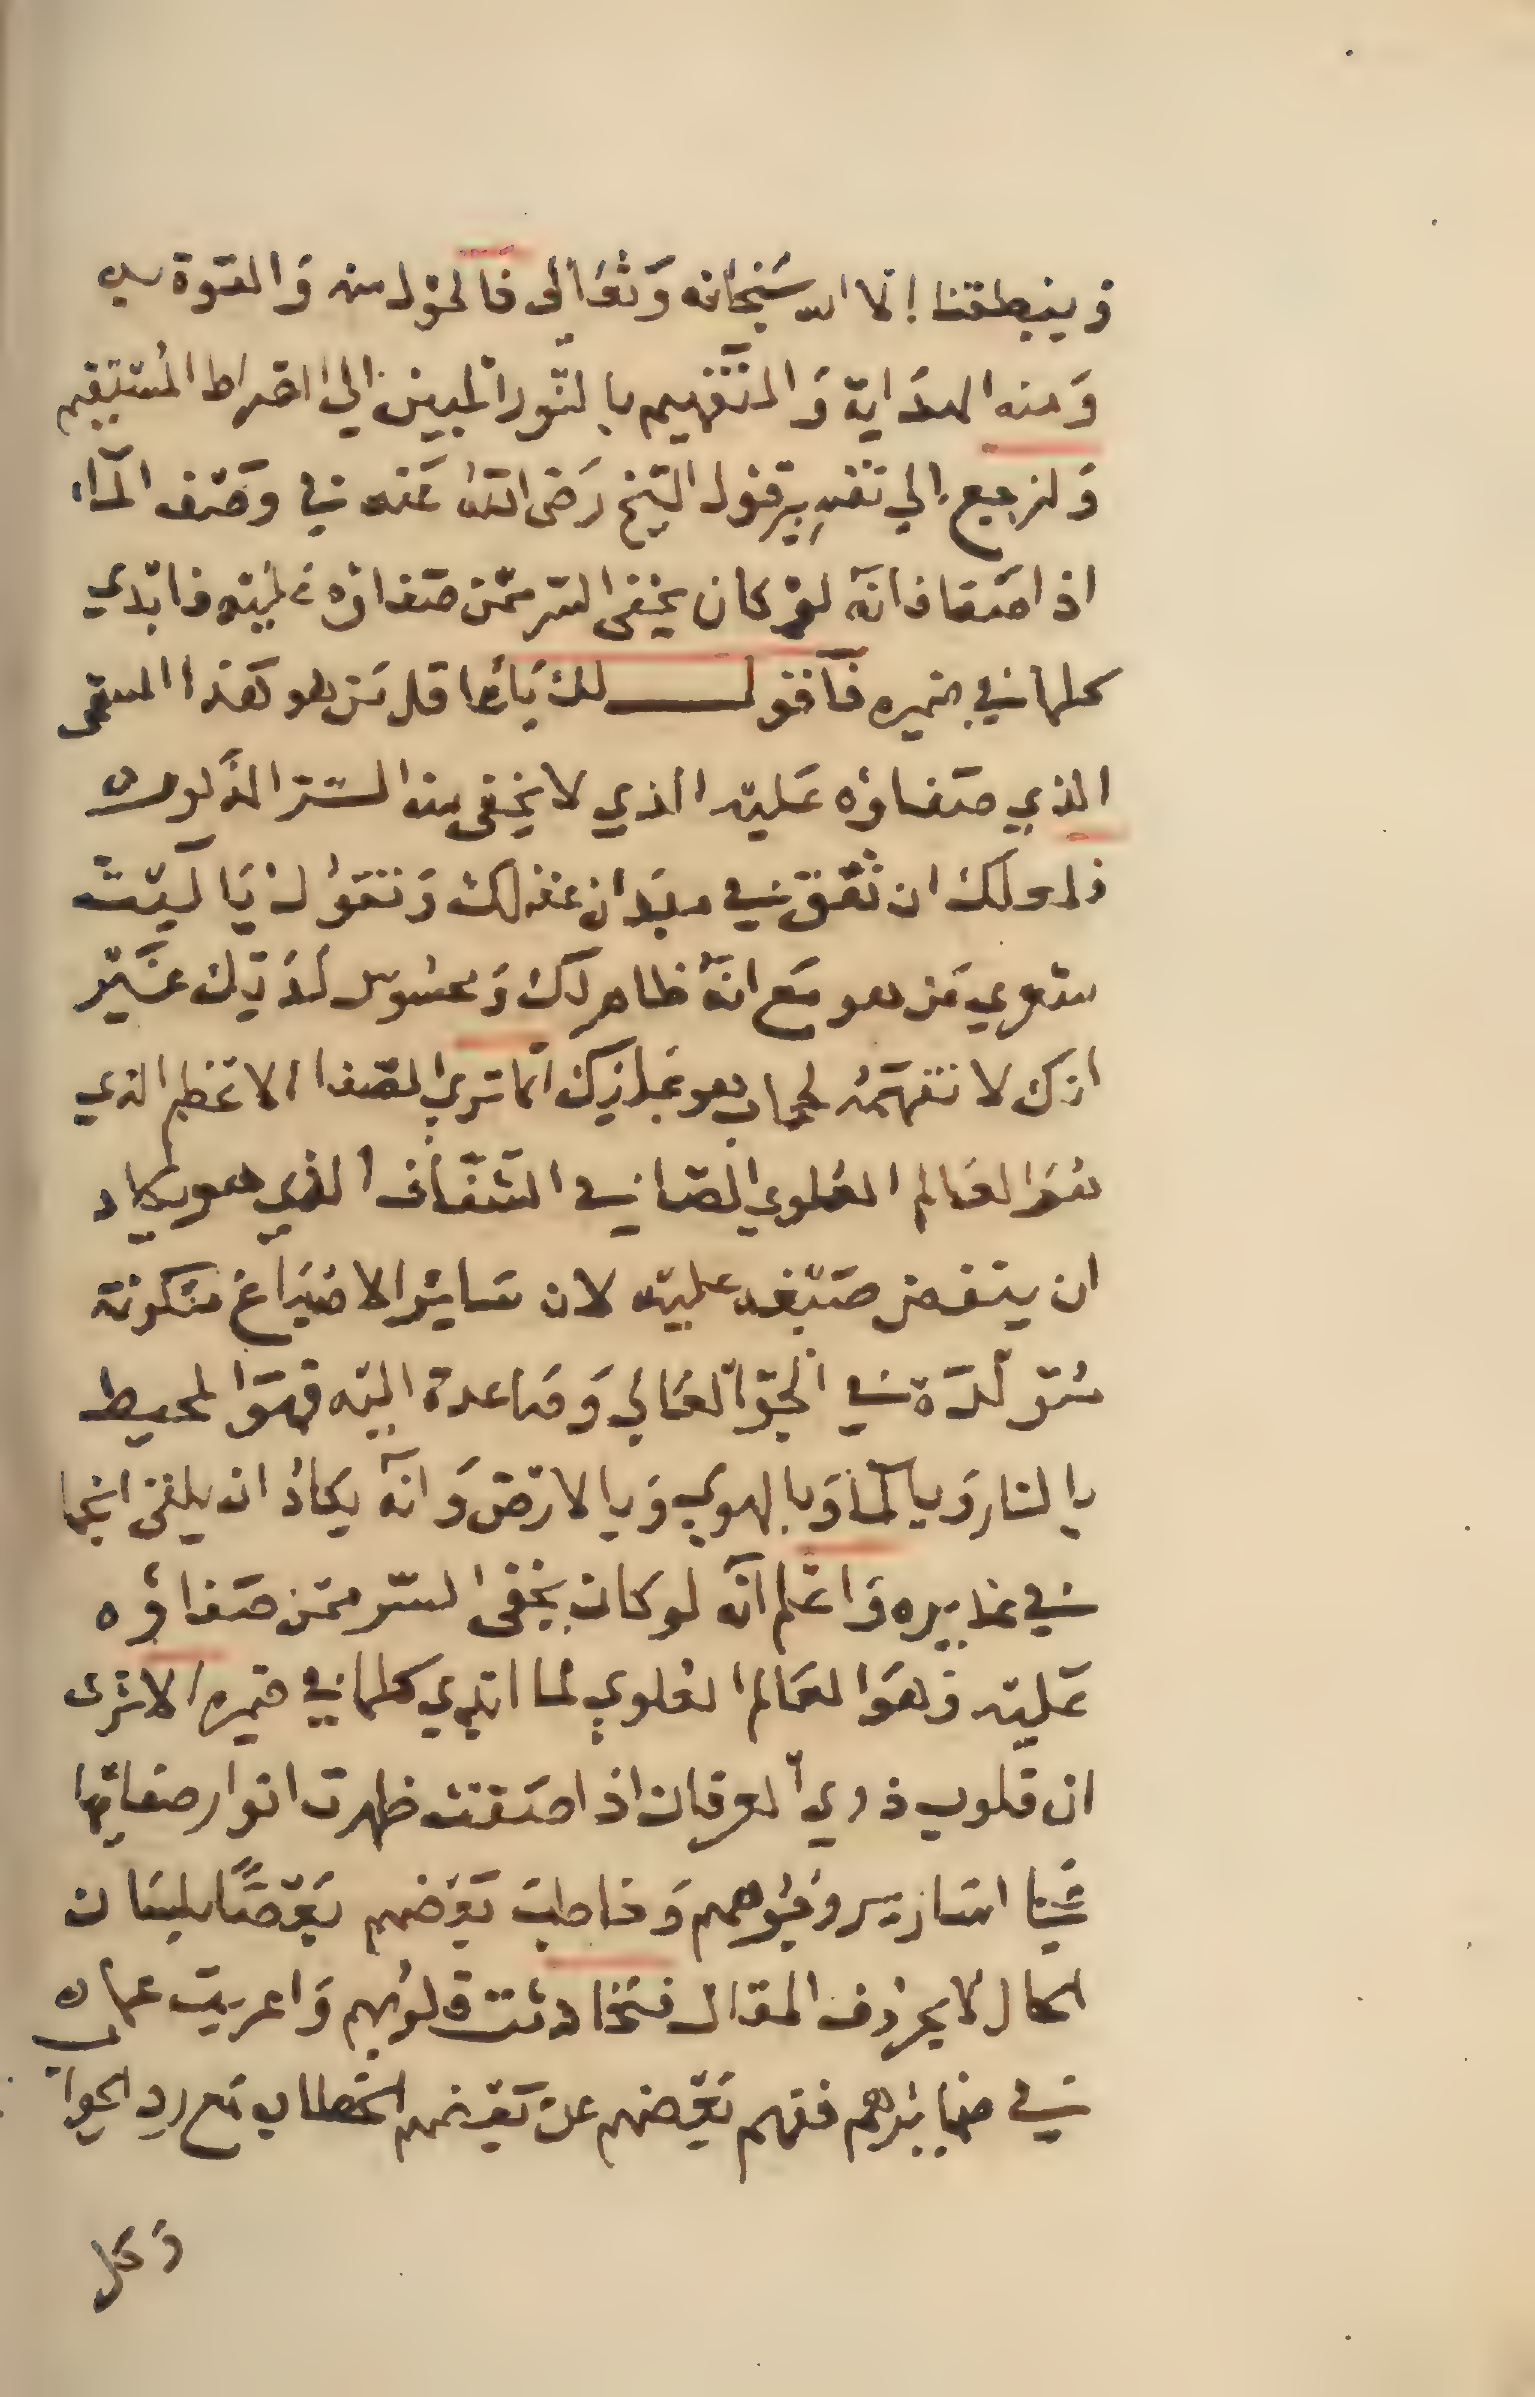 وينطقنا إلا الله سُبْحَانه وَتَعَالى فَالحَوْل منه وَالقوّة به
وَمنه الهدَاية وَالتَّفهيم بالنّور المبين إلى الصّراط المُستقيم
وَلنرجع إلى تفسير قول الشيخ رَضى اللهُ عَنه في وصَف المآء
اذا صَفا فانهَ لوْ كان يخفى السّر ممّن صَفاؤه عَليْه فابْدي
كلما في ضميره فَاقول لك يَاعاقل مَن هو هَذا المسمّى
الذي صَفاؤه عَليه الذي لا يخفى منه السّر المذكور
فلعلك ان تقفَ في ميدان عقلك وَتقوُل يَا ليْت
شعري مَن هو مَع انهَّ ظاهر لك وَمحسُوس لَدَيك غَير
انك لا تفهَمهُ لحجاب هو عَليك امّا تري الصّفا الاعظم الذي
هُوَ العَالم العُلوي الصّافي الشّفّاف الذي هو يكاد
ان ينفض صَبغه عليْه لان سَايُر الاصْبَاغ متكونة
متوَلّدَة في الجوّ العَالي وَصَاعدة اليْه فهوَ المحيط
بالنار وَبالمآ وَبالهوي وَبالارضْ وَانهَ يكادُ ان يلقى انجما
في غدَيره وَاعْلم انهَ لو كان يخفى السّر ممّن صَفاؤُه
عَليْه وَهوَ العَالم العُلوي لما ابْدي كلما في ضميره الا ترى
ان قلوب ذوي العرفان اذا صَفت ظهرت انوار صفائها
في اسَارير وُجُوههم وَخاطبَ بَعْضهم بَعْضًا بلسَان
الحال لا بحرُوف المقال فتحَادثت قلوُبهم وَاعربت عمان
في ضمائرهم ففهم بَعْضهم عن بَعْضهم الخطاب مَع رد الجواب
وَكل